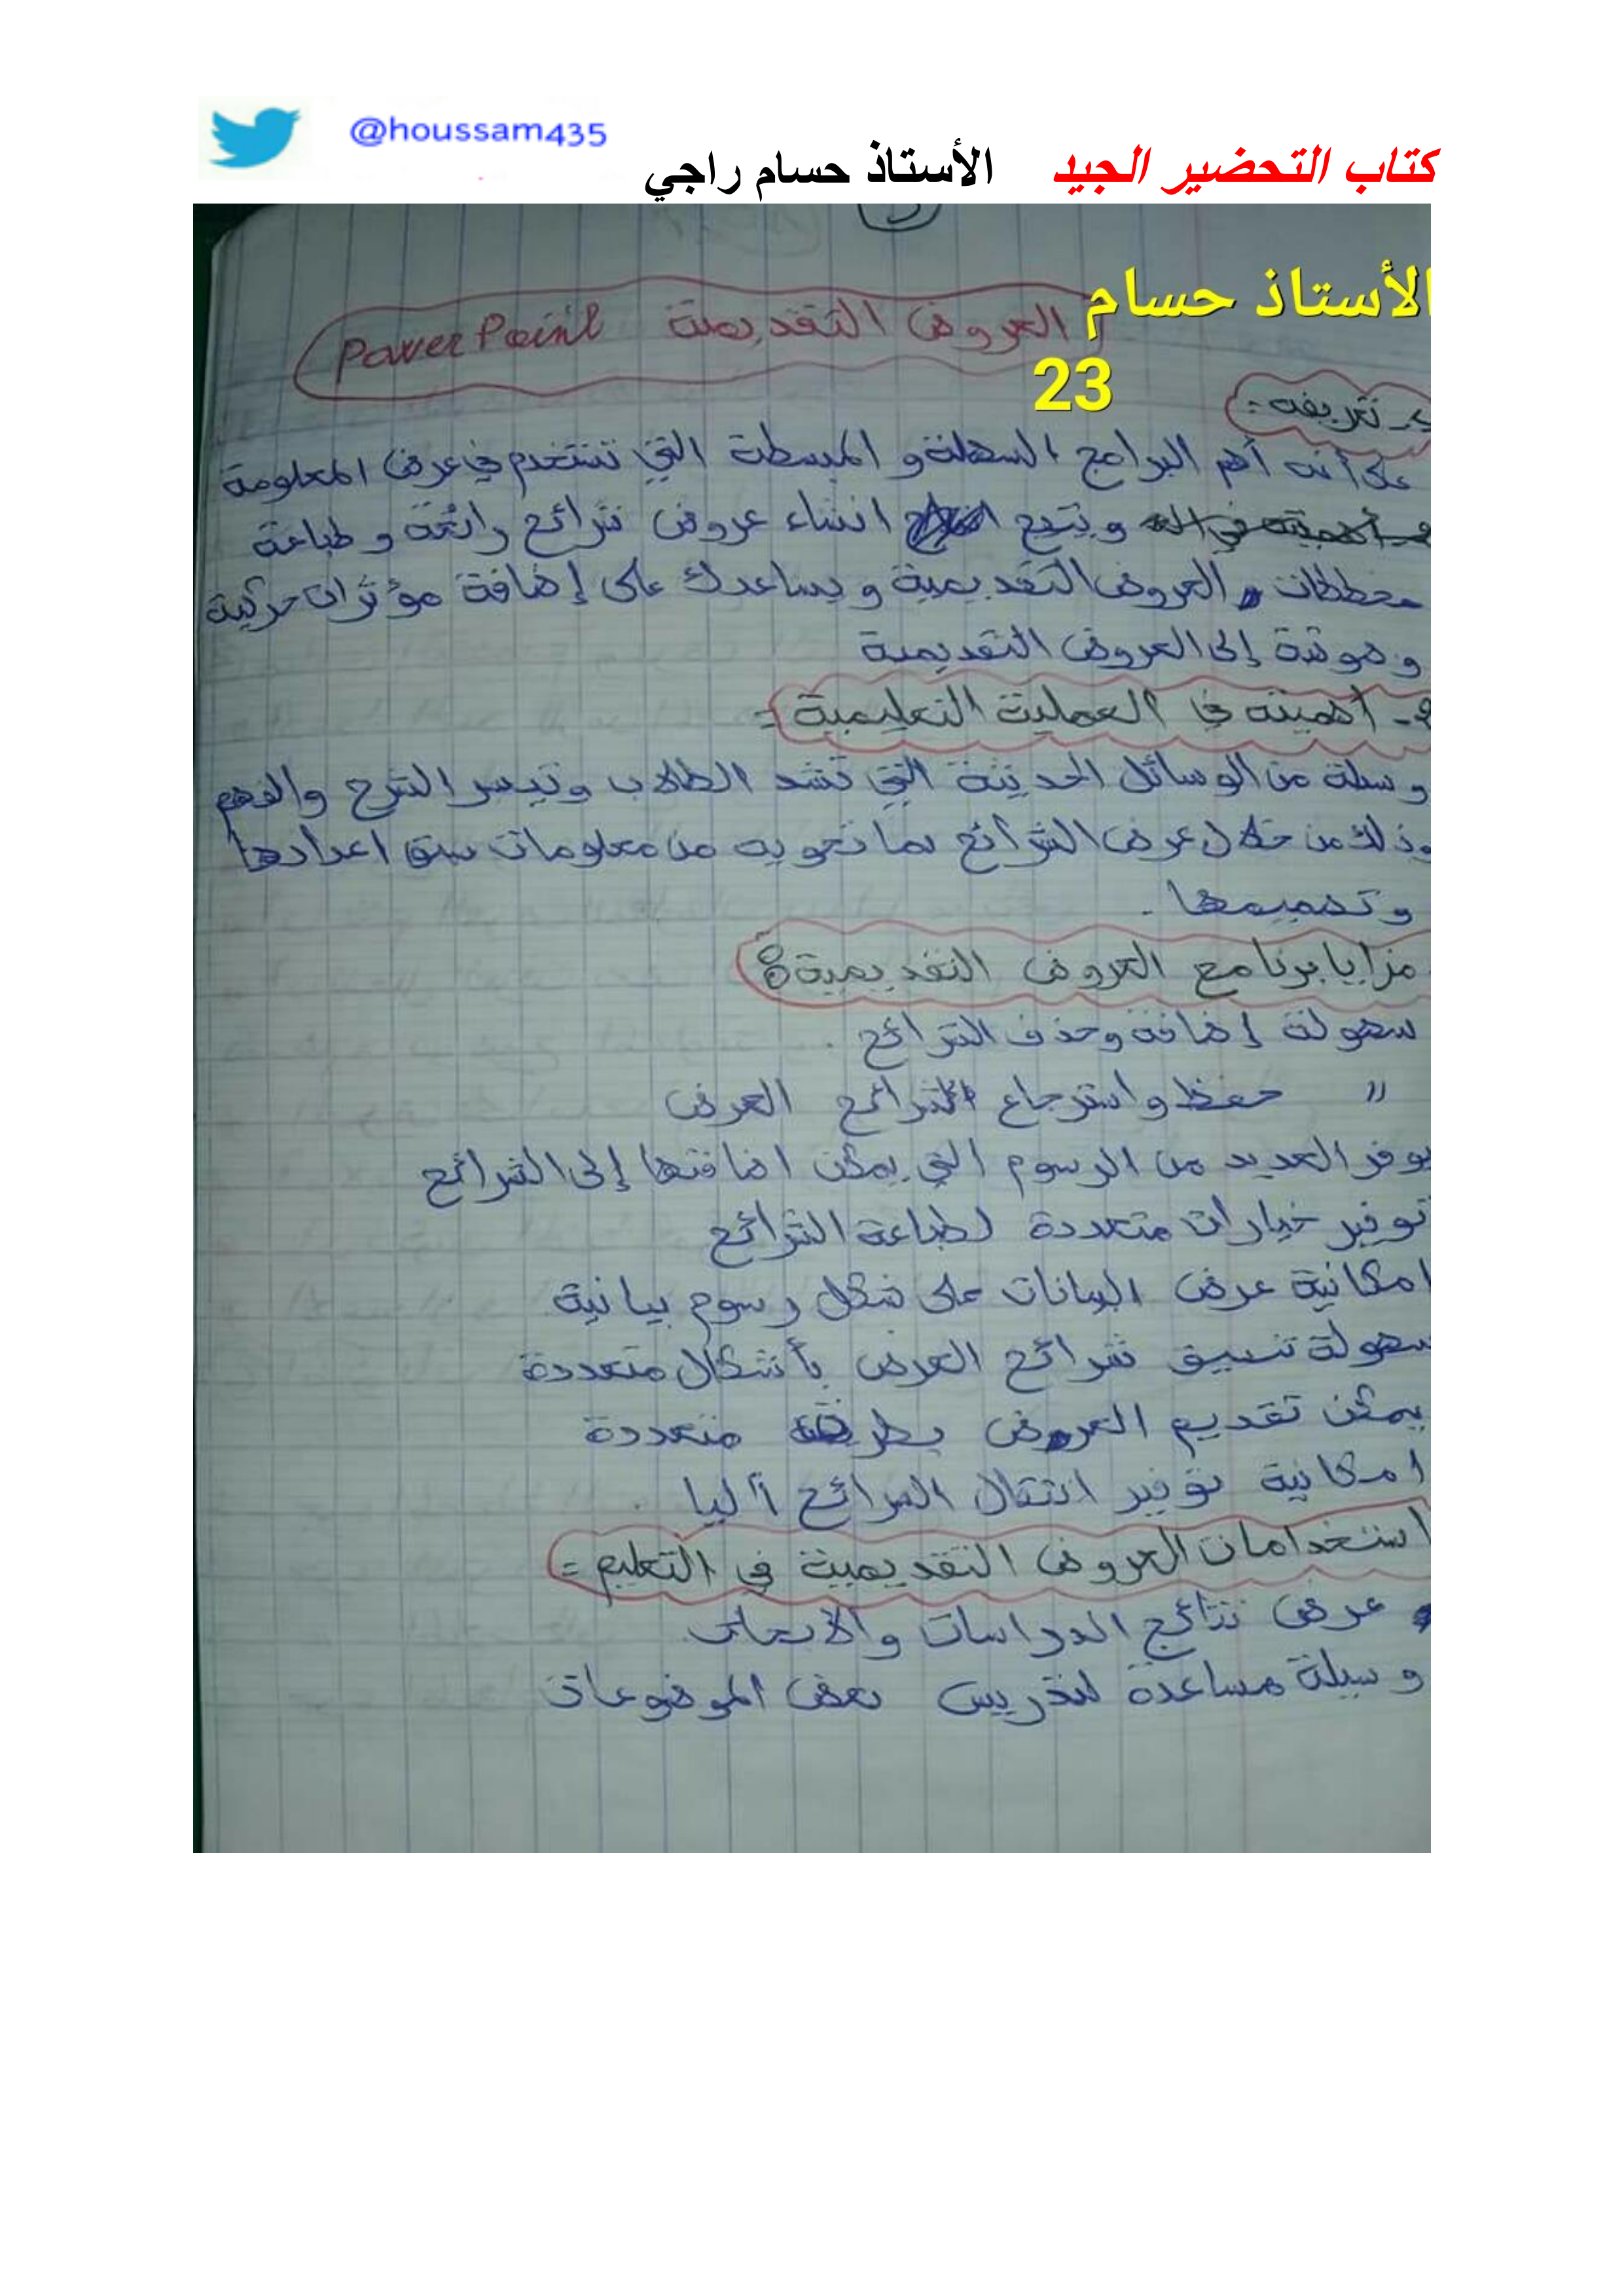 @houssam435
كتاب التحضير الجيد الأستاذ حسام راجي
الأستاذ حسام
23
العروض التقديمية PowerPoint
تعريفه:
على أنه أهم البرامج السهلة و المبسطة التي تستخدم في عرض المعلومة
ويتيح انشاء عروض شرائح رائعة و طباعة
مخططات العروض التقديمية و يساعدك على إضافة مؤثرات حركية
و صوتية إلى العروض التقديمية
2- أهميته في العملية التعليمية:
وسيلة من الوسائل الحديثة التي تشد الطلاب وتيسر الشرح والفهم
وذلك من خلال عرض الشرائح بما تحويه من معلومات سبق اعدادها
وتصميمها.
مزايا برنامج العروض التقديمية:
سهولة إضافة وحذف الشرائح.
" حفظ واسترجاع الشرائح العرض
يوفر العديد من الرسوم التي يمكن اضافتها إلى الشرائح
توفير خيارات متعددة لطباعة الشرائح
امكانية عرض البيانات على شكل رسوم بيانية
سهولة تنسيق شرائح العرض بأشكال متعددة
يمكن تقديم العروض بطرق متعددة
امكانية توفير انتقال الشرائح آليا.
استخدامات العروض التقديمية في التعليم:
عرض نتائج الدراسات والأبحاث.
وسيلة مساعدة لتدريس بعض الموضوعات